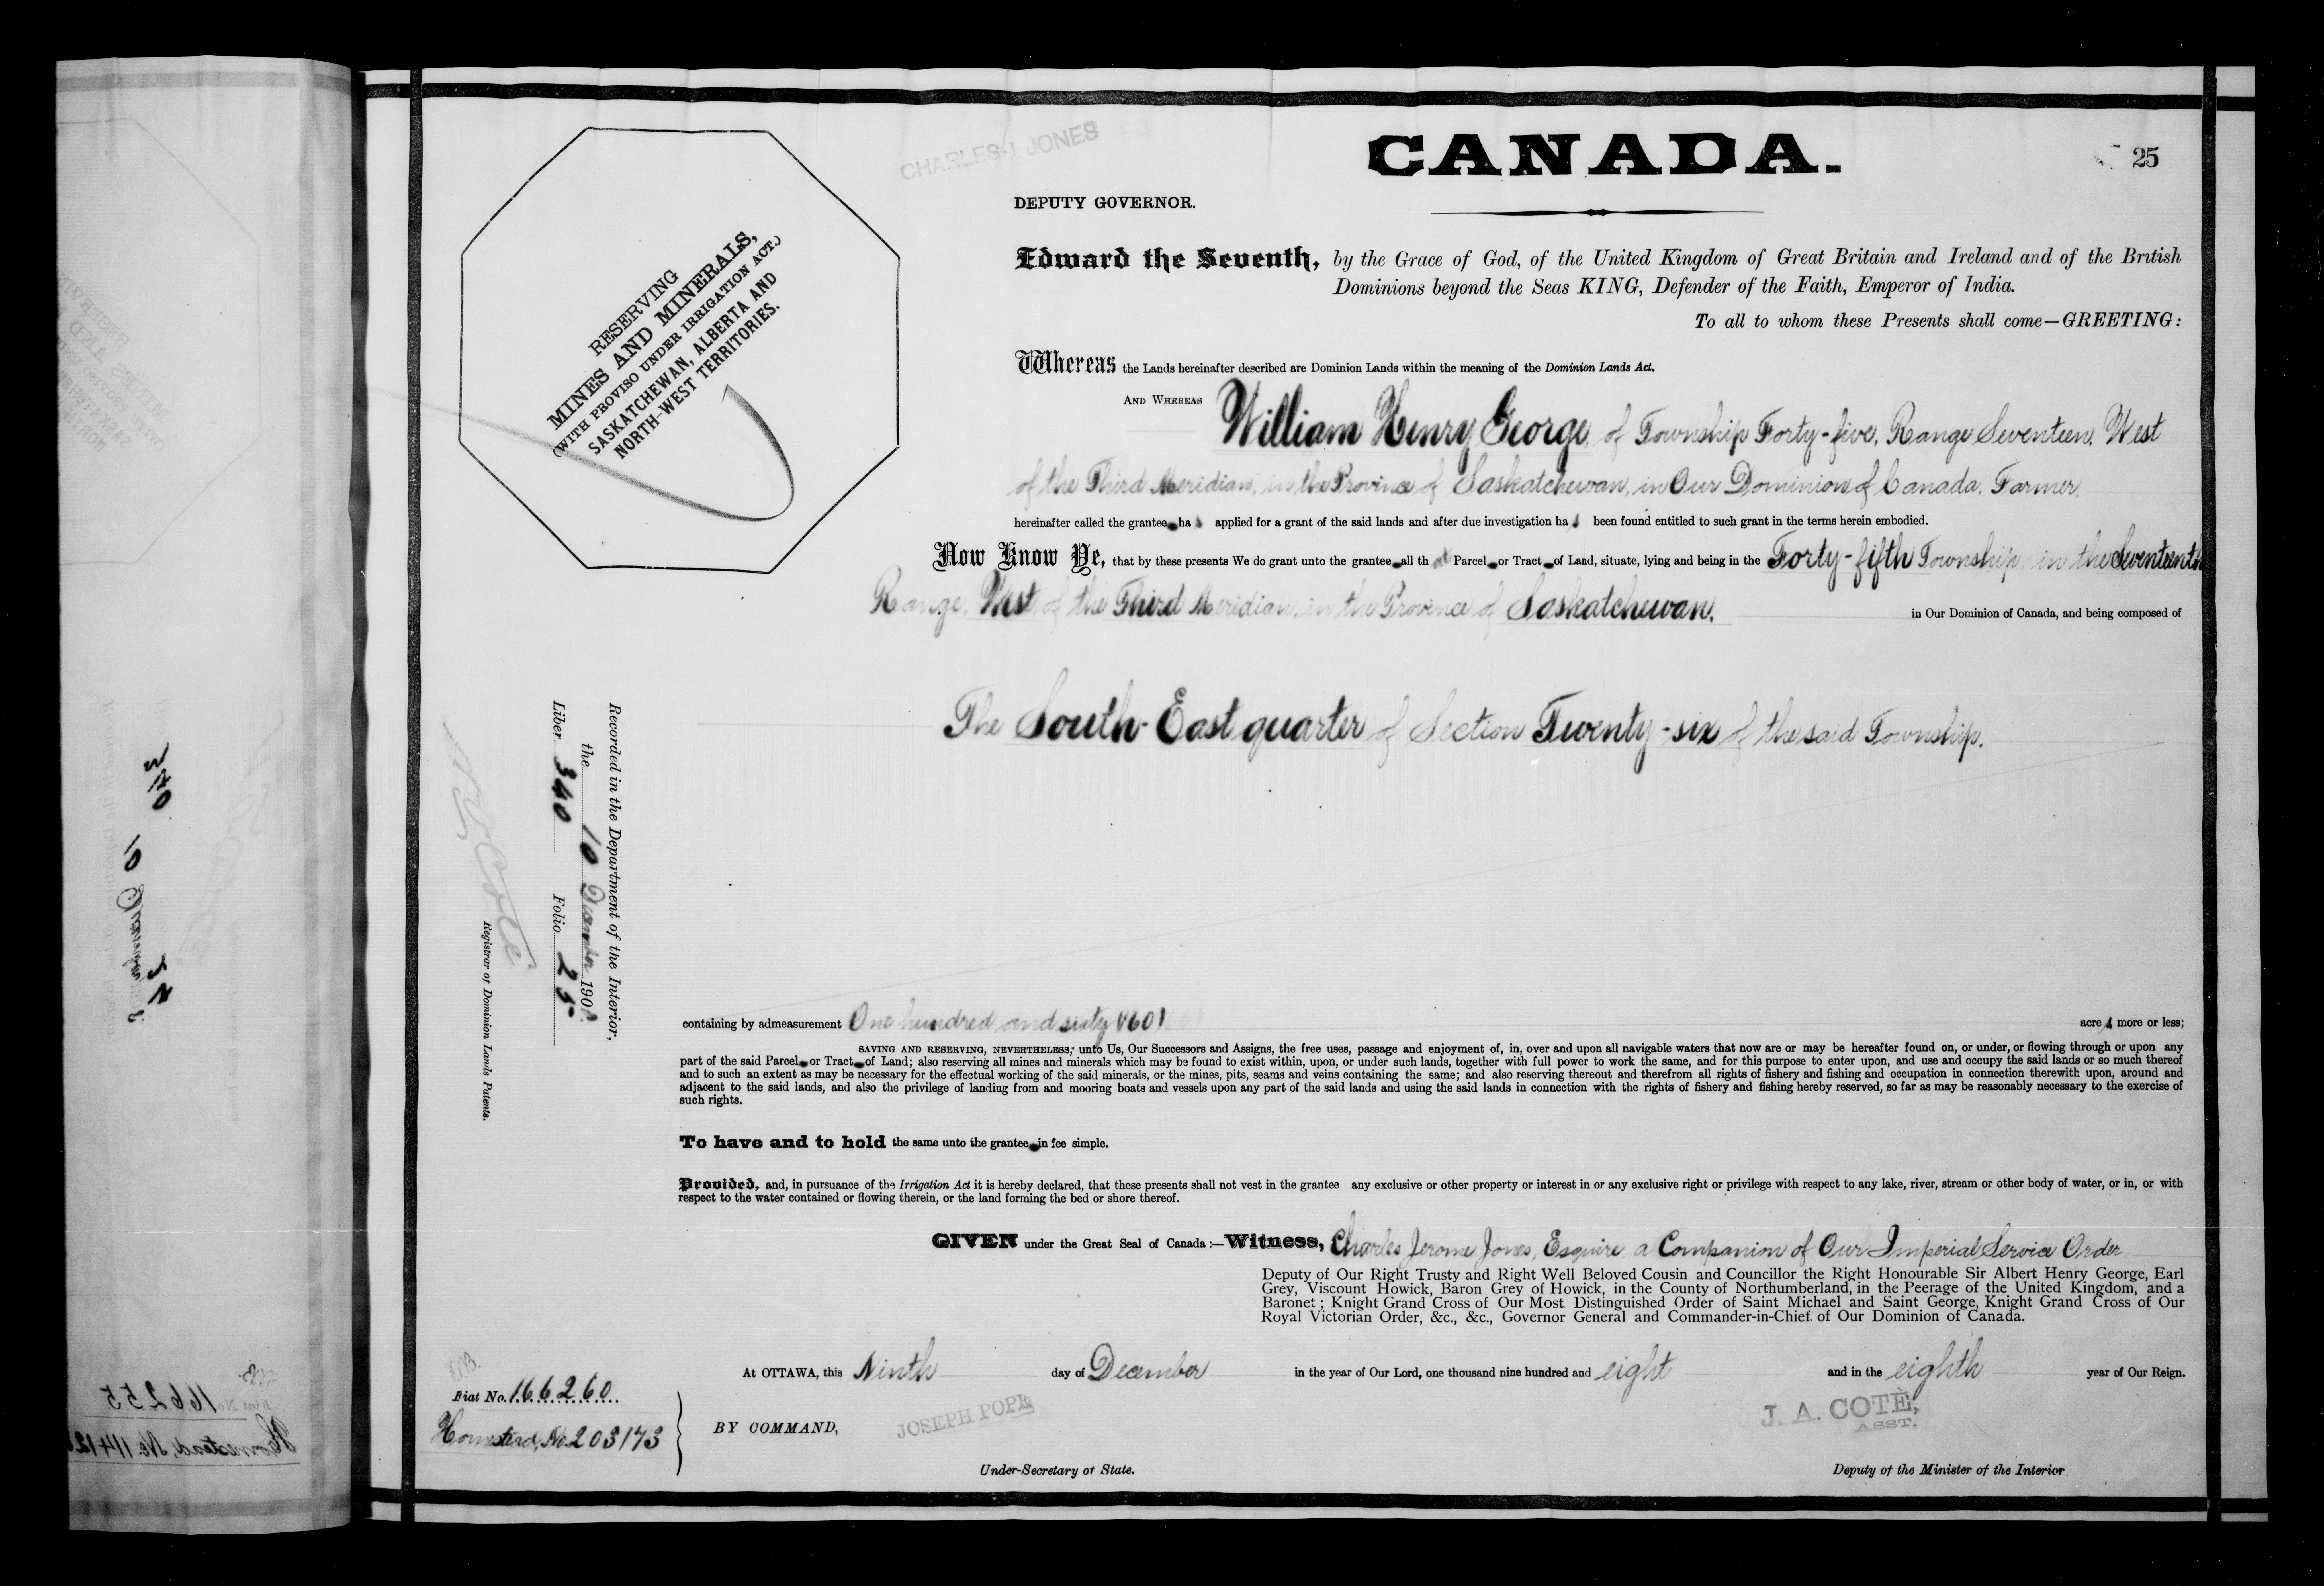 CHARLES J. JONES
CANADA.
25
DEPUTY GOVERNOR.
Edward the Seventh, by the Grace of God, of the United Kingdom of Great Britain and Ireland and of the British
Dominions beyond the Seas KING, Defender of the Faith, Emperor of India.
To all to whom these Presents shall come—GREETING:
RESERVING
MINES AND MINERALS,
(WITH PROVISO UNDER IRRIGATION ACT.)
SASKATCHEWAN, ALBERTA AND
NORTH-WEST TERRITORIES.
Whereas the Lands hereinafter described are Dominion Lands within the meaning of the Dominion Lands Act.
AND WHEREAS William Henry George of Township Forty-five, Range Seventeen, West
of the Third Meridian, in the Province of Saskatchewan, in Our Dominion of Canada, Farmer,
hereinafter called the grantee has applied for a grant of the said lands and after due investigation has been found entitled to such grant in the terms herein embodied.
Now Know Ye, that by these presents We do grant unto the grantee all that Parcel or Tract of Land, situate, lying and being in the Forty-fifth Township in the Seventeenth
Range, West of the Third Meridian, in the Province of Saskatchewan, in Our Dominion of Canada, and being composed of
The South-East quarter of Section Twenty-six of the said Township.
Recorded in the Department of the Interior,
the 10 December 1908.
Liber 340 Folio 25
N. O. Coté
Registrar of Dominion Lands Patents.
containing by admeasurement One hundred and sixty (160) acres more or less;
SAVING AND RESERVING, NEVERTHELESS, unto Us, Our Successors and Assigns, the free uses, passage and enjoyment of, in, over and upon all navigable waters that now are or may be hereafter found on, or under, or flowing through or upon any
part of the said Parcel or Tract of Land; also reserving all mines and minerals which may be found to exist within, upon, or under such lands, together with full power to work the same, and for this purpose to enter upon, and use and occupy the said lands or so much thereof
and to such an extent as may be necessary for the effectual working of the said minerals, or the mines, pits, seams and veins containing the same; and also reserving thereout and therefrom all rights of fishery and fishing and occupation in connection therewith upon, around and
adjacent to the said lands, and also the privilege of landing from and mooring boats and vessels upon any part of the said lands and using the said lands in connection with the rights of fishery and fishing hereby reserved, so far as may be reasonably necessary to the exercise of
such rights.
To have and to hold the same unto the grantee in fee simple.
Provided, and, in pursuance of the Irrigation Act it is hereby declared, that these presents shall not vest in the grantee any exclusive or other property or interest in or any exclusive right or privilege with respect to any lake, river, stream or other body of water, or in, or with
respect to the water contained or flowing therein, or the land forming the bed or shore thereof.
GIVEN under the Great Seal of Canada:—Witness, Charles Jerome Jones, Esquire a Companion of Our Imperial Service Order
Deputy of Our Right Trusty and Right Well Beloved Cousin and Councillor the Right Honourable Sir Albert Henry George, Earl
Grey, Viscount Howick, Baron Grey of Howick, in the County of Northumberland, in the Peerage of the United Kingdom, and a
Baronet; Knight Grand Cross of Our Most Distinguished Order of Saint Michael and Saint George, Knight Grand Cross of Our
Royal Victorian Order, &c., &c., Governor General and Commander-in-Chief of Our Dominion of Canada.
At OTTAWA, this Ninth day of December in the year of Our Lord, one thousand nine hundred and eight and in the eighth year of Our Reign.
Fiat No. 166260
Homestead, No. 203173
BY COMMAND,
JOSEPH POPE
Under-Secretary of State.
J. A. COTÈ,
ASST.
Deputy of the Minister of the Interior
340
10 December
25
166255